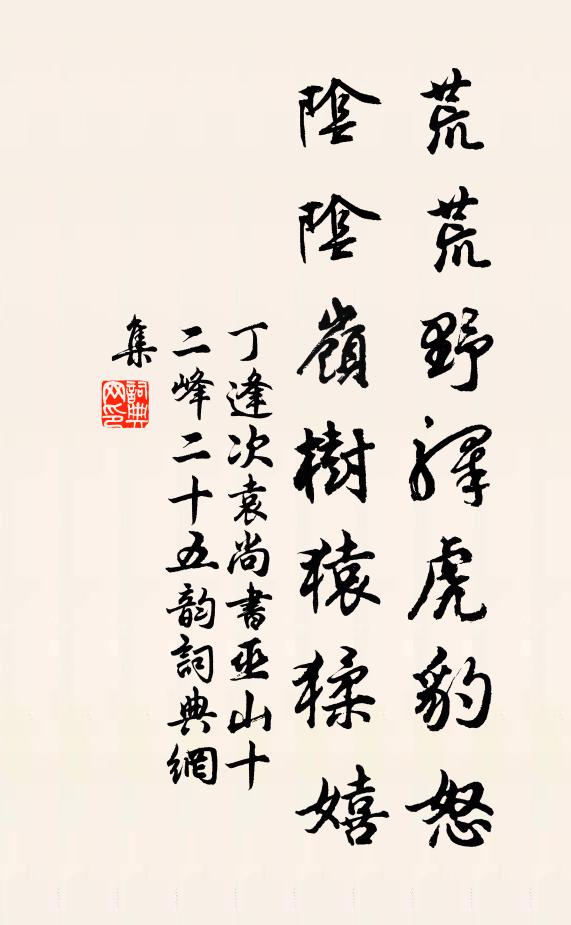 荒荒野驛虎豹怒
陰陰嶺樹猿猱嬉
丁逢次袁尚書巫山十
二峰二十五韵詞典網
集
詞典网印